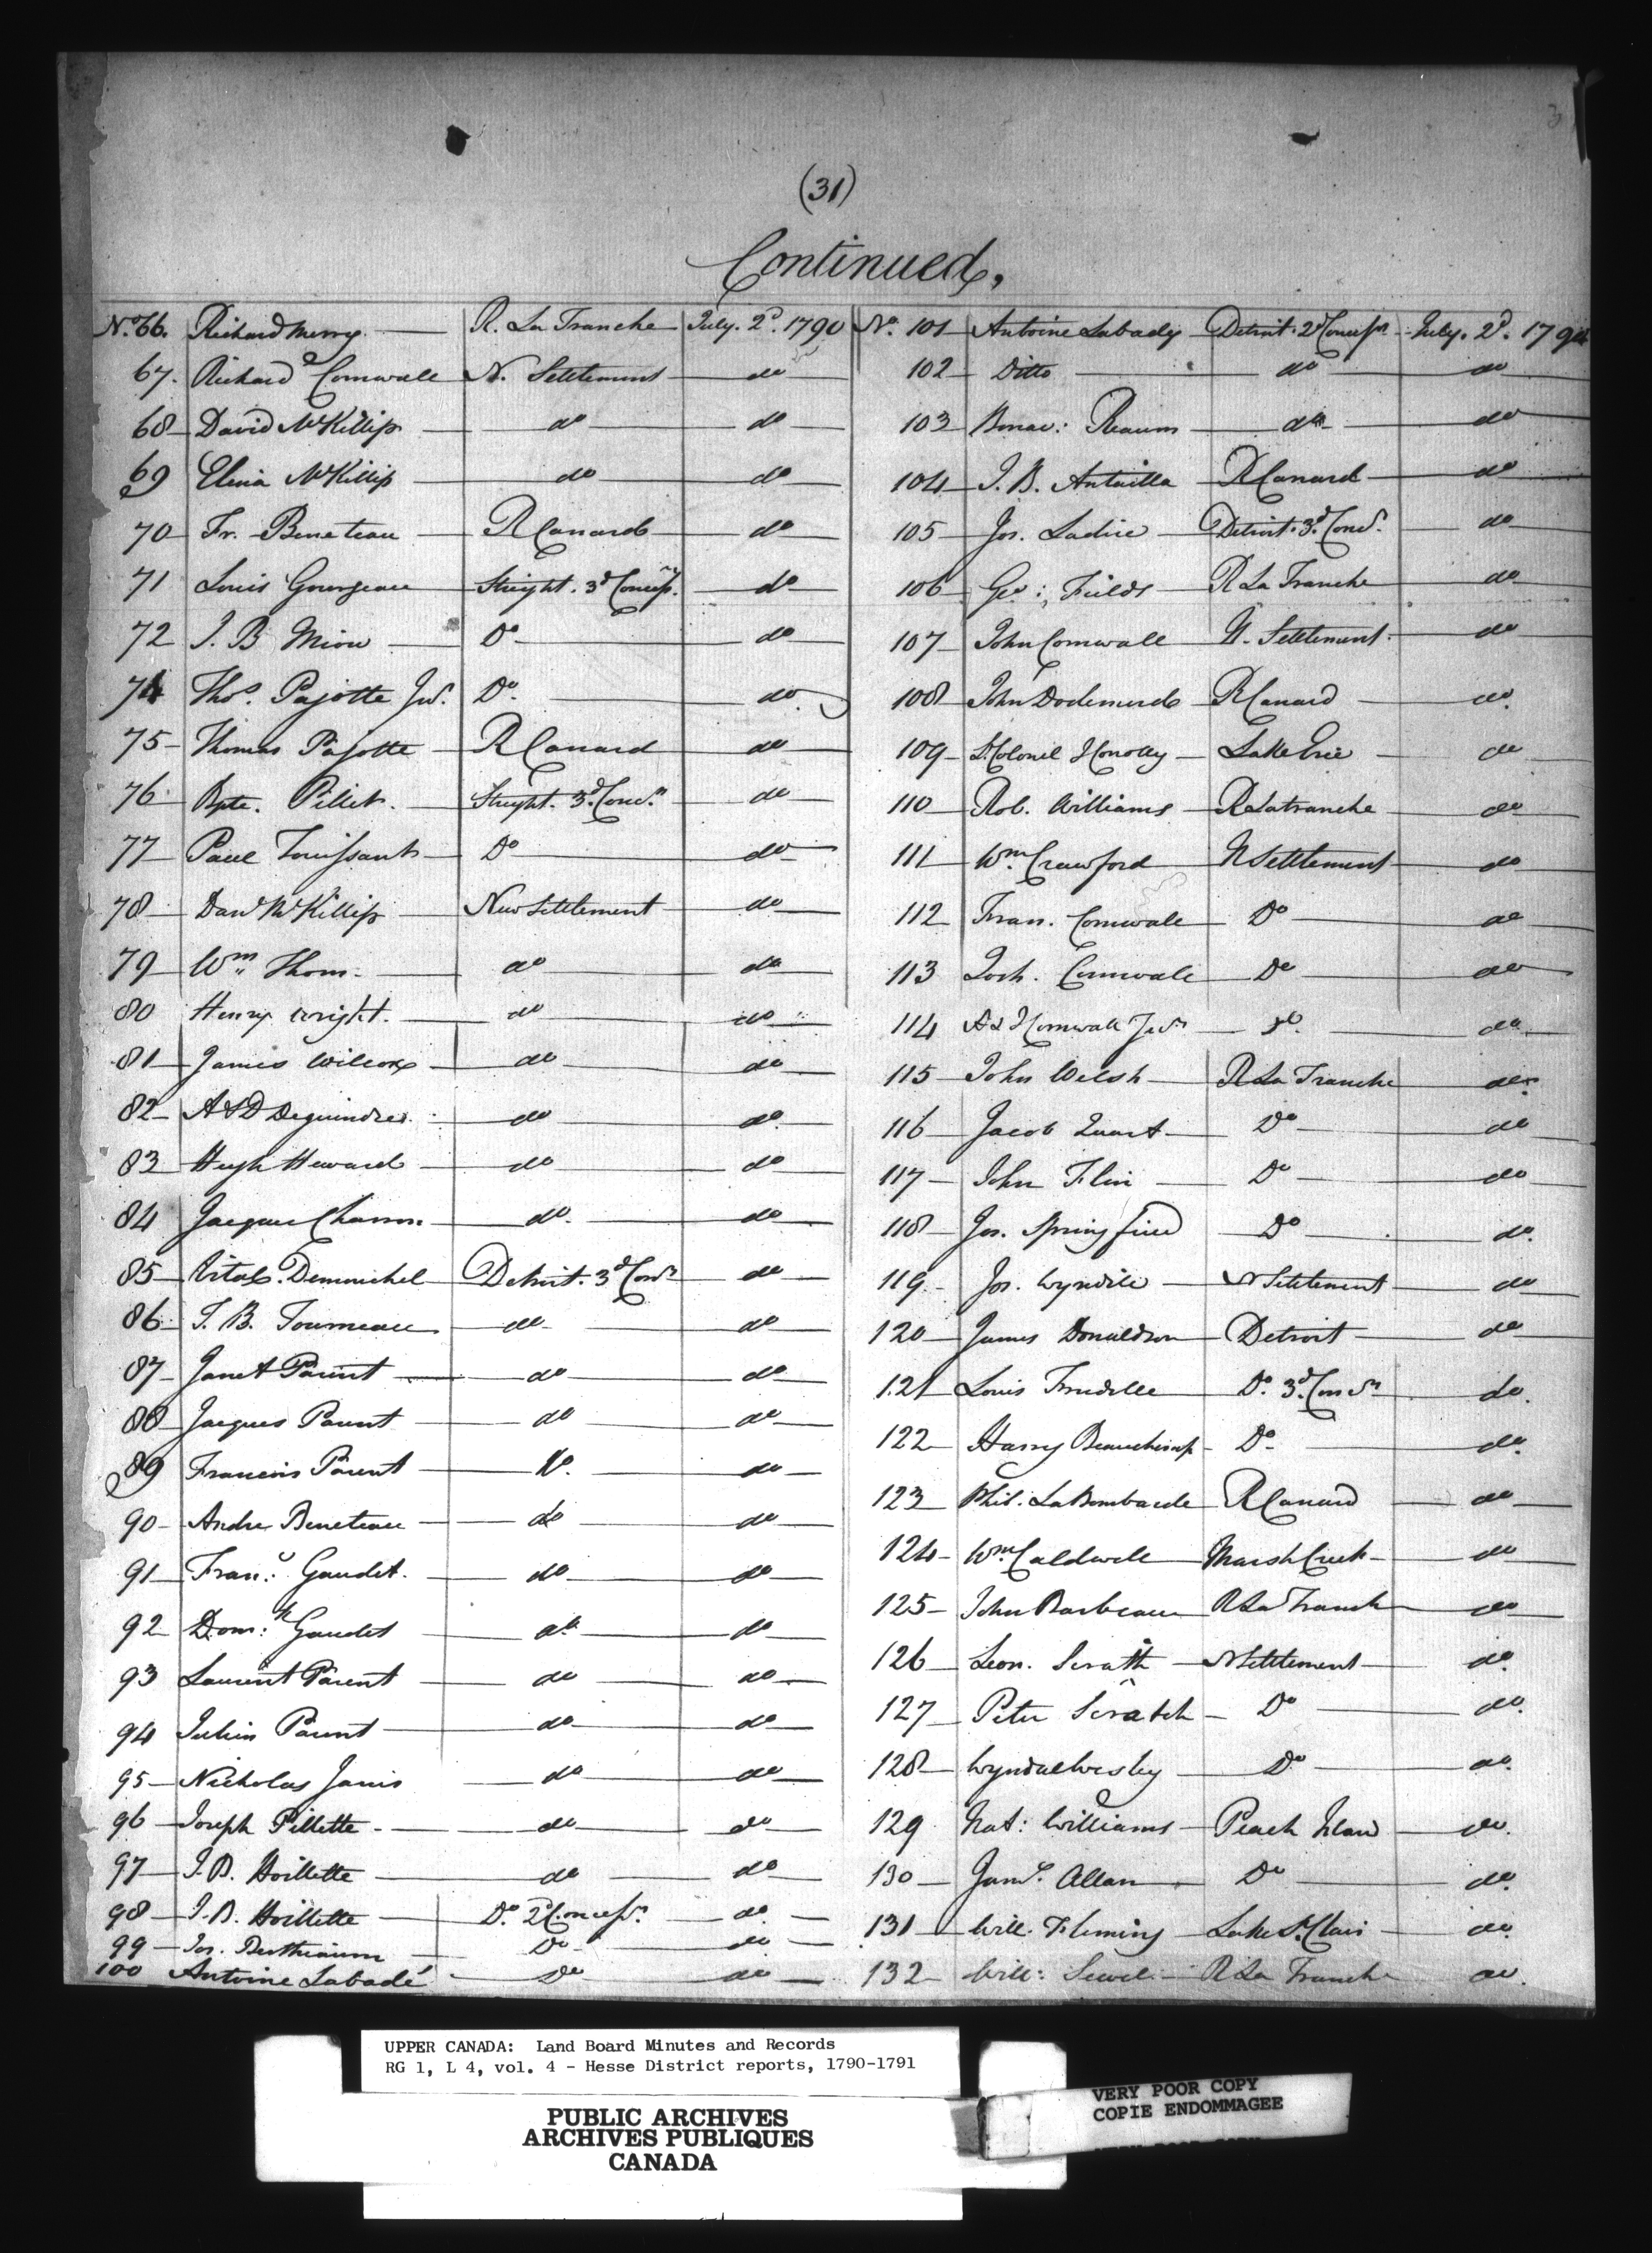 (31)
Continued,
No. 66. Richard Merry R. La Tranche July. 2d. 1790
67. Richard Cornwall N. Settlement do
68 David McKillip do do
69 Elena McKillip do do
70 Fr. Beneteau R Canard do
71 Louis Gourgeau Streight. 3d Concessn. do
72 J. B Miou Do do
74 Thos. Pajotte Junr. Do. do.
75 Thomas Pajotte R Canard do
76 Bpte. Pillet. Streight. 3d. Concn. do
77 Paul Touissant Do do
78 Danl McKillip New Settlement do
79 Wm Thorn do do
80 Henry Wright. do do
81 James Wilcox do do
82 A & D Dequindre do do
83 Hugh Heward do do
84 Jacques Charon do. do
85 Vital Demouchel Detroit. 3d Concn do
86 J. B. Tourneau do do
87 Janet Parent do do
88 Jacques Parent do do
89 Francois Parent Do. do
90 Andre Beneteau do do
91 Frans. Gaudet. do do
92 Dom: Gaudet do do
93 Laurent Parent do do
94 Julien Parent do do
95 Nicholas Janis do do
96 Joseph Pillette do do
97 J. B. Hoillette do do
98 J. B. Hoillette Do. 2d. Concessn. do.
99 Jos. Berthiaum Do do
100 Antoine Labadé Do do
No. 101 Antoine Labady Detroit. 2d Concessn July. 2d. 1790
102 Ditto do do
103 Bonav: Reaum do do
104 J. B. Antailla R Canard do
105 Jos. Ladice Detroit. 3d. Concn. do
106 Geo: Fields R La Tranche do
107 John Cornwall N. Settlement. do
108 John Dodemerd R Canard do.
109 Lt. Colonel Conolly Lake Erie do
110 Rob. Williams R Latranche do
111 Wm. Crawford N Settlement do
112 Fran. Cornwall Do do
113 Josh. Cornwall Do do
114 A & J Cornwall Junr do. do
115 John Welsh R La Tranche do.
116 Jacob Quant Do do
117 John Flin Do do
118 Jos. Springfied Do do.
119 Jos. Wyndile N Settlement do
120 James Donaldson Detroit do
121 Louis Trudelle Do. 3d. Concn do.
122 Harry Beauchamp Do do.
123 Phil. La Bombarde R Canard do
124 Wm. Caldwell Marsh Creek do
125 John Barbeau R La Tranch do
126 Leon. Scratch N Settlement do.
127 Peter Scratch Do do.
128 Wyndal Wesley Do do.
129 Nat: Williams Peach Island do.
130 Jams. Allan Do do.
131 Will. Fleming Lake St. Clair do.
132 Will: Sewel R La Tranch do.
UPPER CANADA: Land Board Minutes and Records
RG 1, L 4, vol. 4 - Hesse District reports, 1790-1791
PUBLIC ARCHIVES
ARCHIVES PUBLIQUES
CANADA
VERY POOR COPY
COPIE ENDOMMAGEE